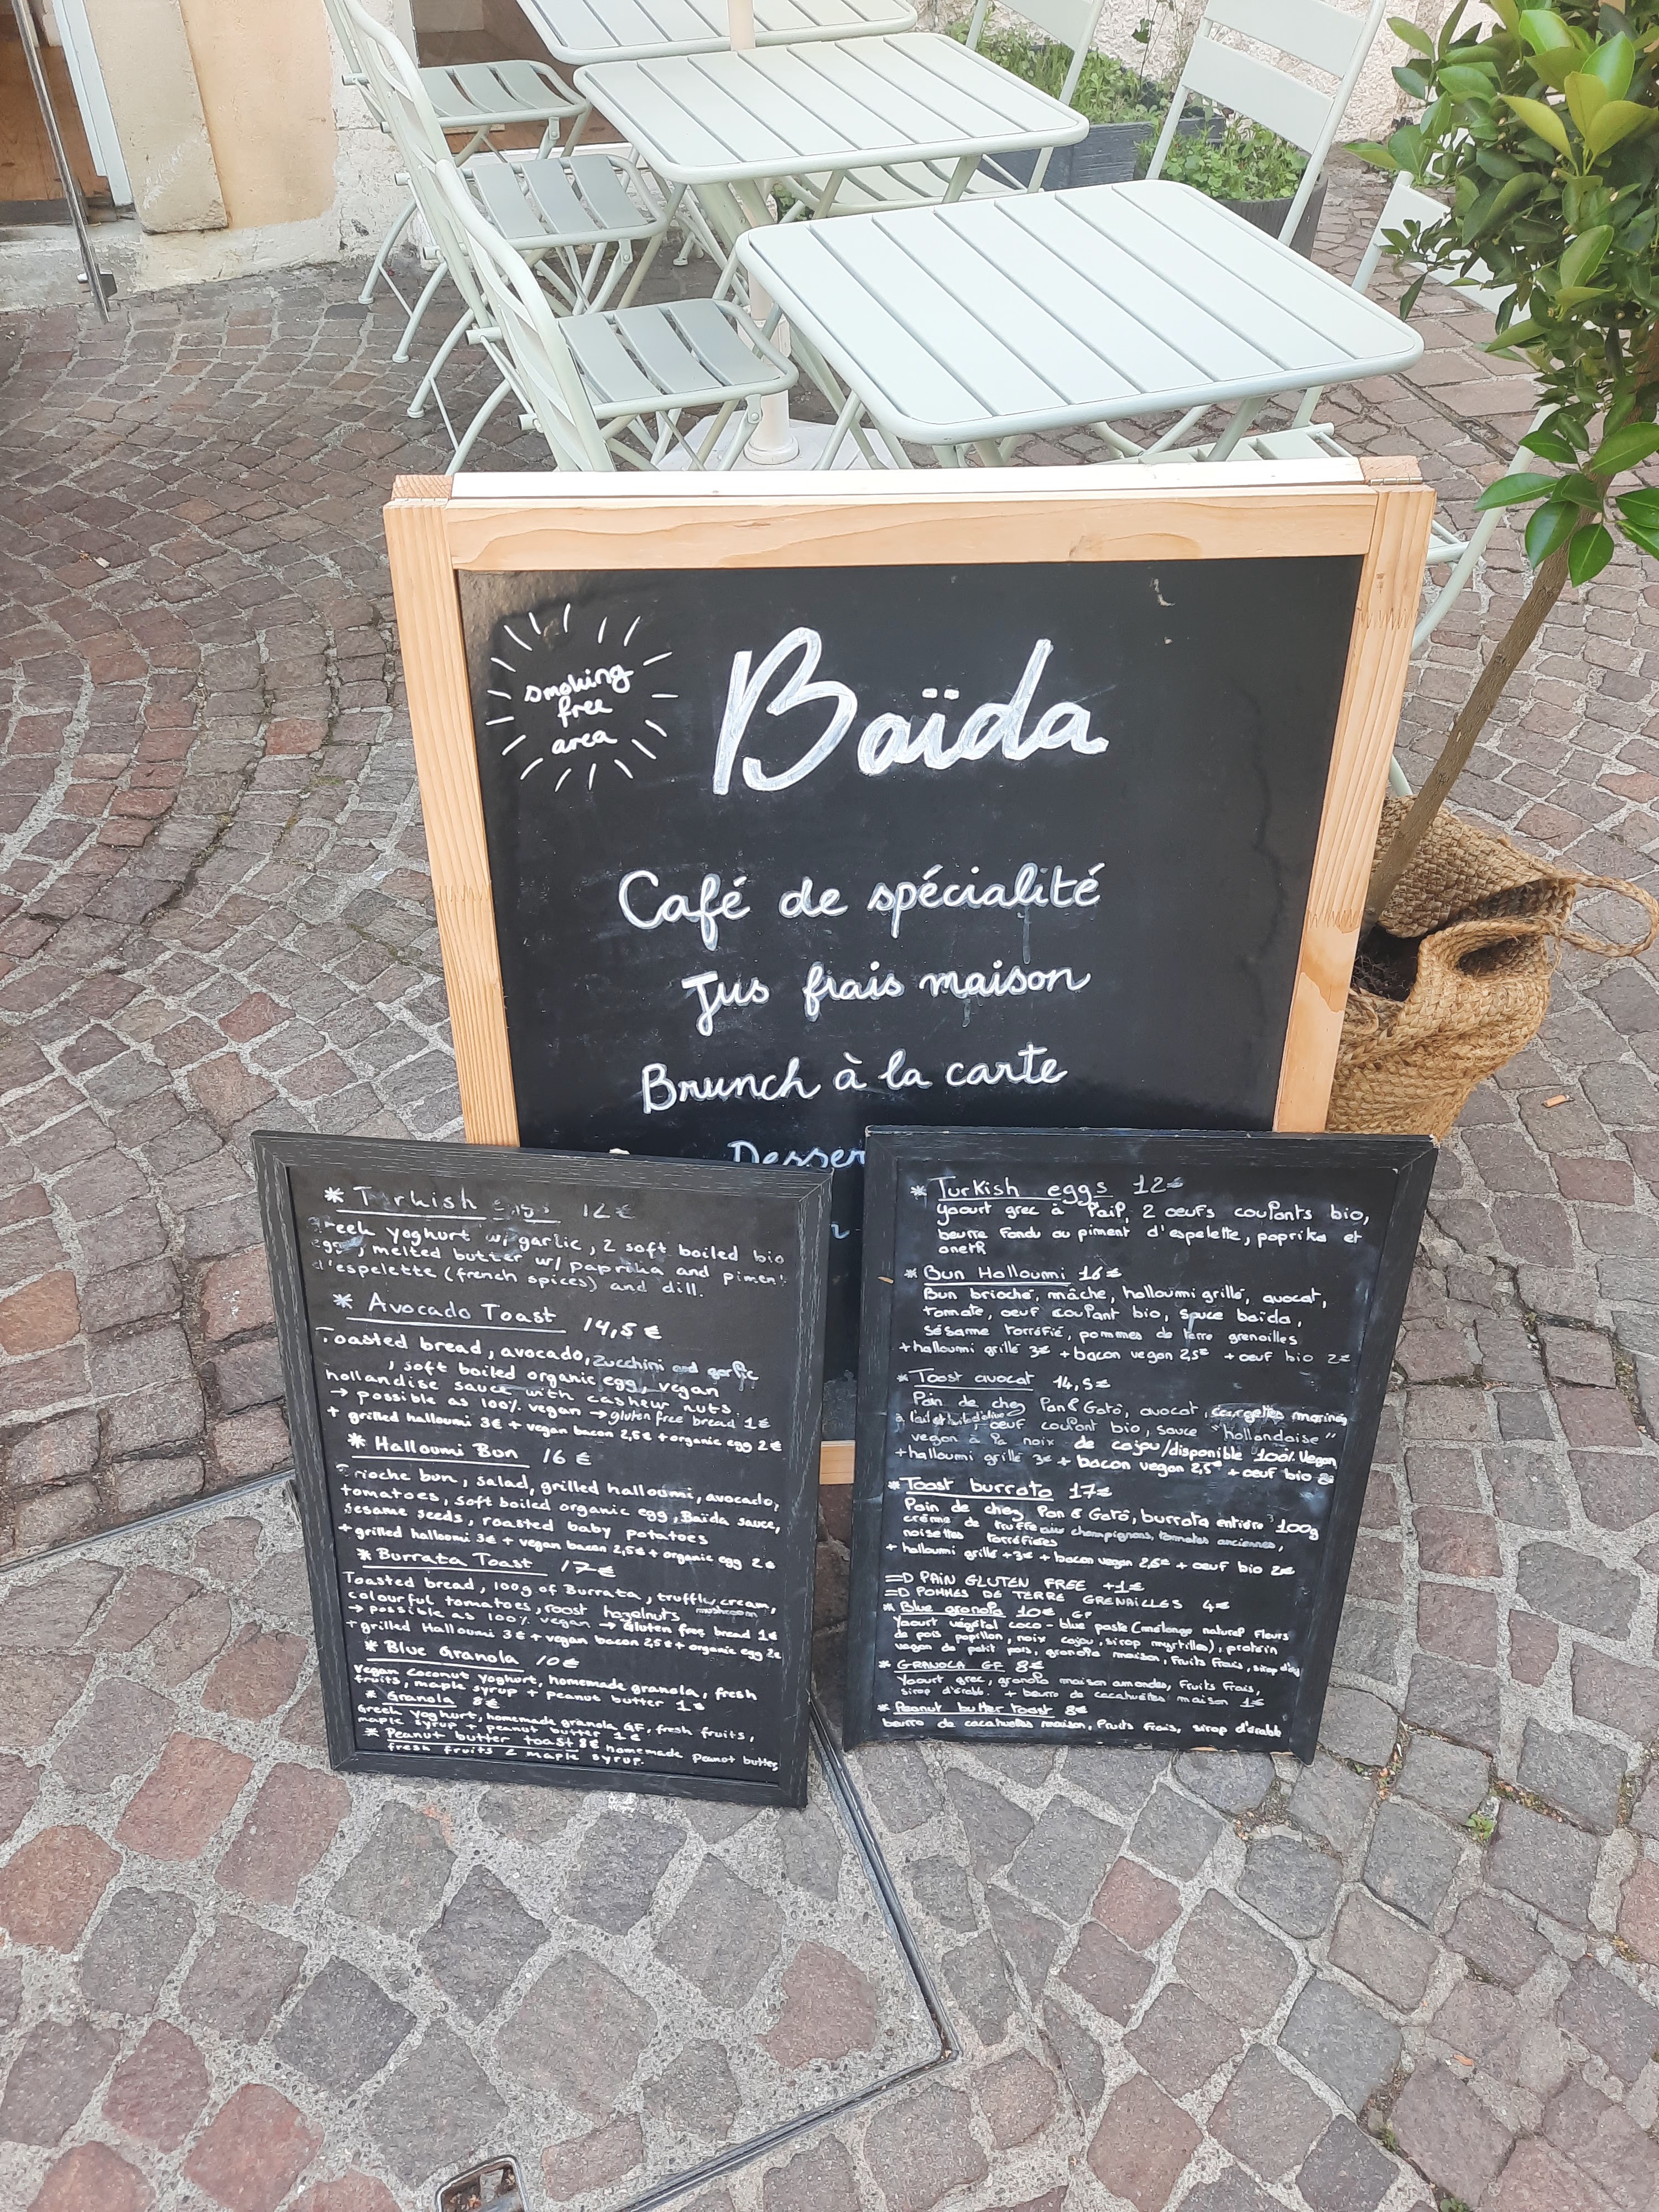 smoking
free
area
Baïda
Café de spécialité
Jus frais maison
Brunch à la carte
Desser
* Turkish eggs 12€
Greek yoghurt w/ garlic, 2 soft boiled bio
eggs, melted butter w/ paprika and piment
d'espelette (french spices) and dill.
* Avocado Toast 14,5€
Toasted bread, avocado, zucchini and garlic
, soft boiled organic egg, vegan
hollandise sauce with cashew nuts.
→ possible as 100% vegan → gluten free bread 1€
+ grilled halloumi 3€ + vegan bacon 2,5€ + organic egg 2€
* Halloumi Bun 16€
Brioche bun, salad, grilled halloumi, avocado,
tomatoes, soft boiled organic egg, Baïda sauce,
sesame seeds, roasted baby potatoes
+ grilled halloumi 3€ + vegan bacon 2,5€ + organic egg 2€
* Burrata Toast 17€
Toasted bread, 100g of Burrata, truffle cream,
colourful tomatoes, roast hazelnuts mushroom
→ possible as 100% vegan → Gluten free bread 1€
+ grilled Halloumi 3€ + vegan bacon 2,5€ + organic egg 2€
* Blue Granola 10€
Vegan coconut yoghurt, homemade granola, fresh
fruits, maple syrup + peanut butter 1€
* Granola 8€
Greek yoghurt, homemade granola GF, fresh fruits,
maple syrup + peanut butter 1€
* Peanut butter toast 8€ homemade peanut butter,
fresh fruits & maple syrup.
* Turkish eggs 12€
Yaourt grec à l'ail, 2 oeufs coulants bio,
beurre fondu au piment d'espelette, paprika et
aneth
* Bun Halloumi 16€
Bun brioché, mâche, halloumi grillé, avocat,
tomate, oeuf coulant bio, sauce baïda,
sésame torréfié, pommes de terre grenailles
+ halloumi grillé 3€ + bacon vegan 2,5€ + oeuf bio 2€
* Toast avocat 14,5€
Pain de chez Pan & Gatô, avocat, courgettes marinées
à l'ail et huile d'olive, oeuf coulant bio, sauce "hollandaise"
vegan à la noix de cajou/disponible 100% Vegan
+ halloumi grillé 3€ + bacon vegan 2,5€ + oeuf bio 2€
* Toast burrata 17€
Pain de chez Pan & Gatô, burrata entière 100g
crème de truffe aux champignons, tomates anciennes,
noisettes torréfiées
+ halloumi grillé +3€ + bacon vegan 2,5€ + oeuf bio 2€
=D PAIN GLUTEN FREE +1€
=D POMMES DE TERRE GRENAILLES 4€
* Blue granola 10€ GF
Yaourt végétal coco - blue paste (mélange naturel fleurs
de pois papillon, noix cajou, sirop myrtilles), protéin
vegan de petit pois, granola maison, fruits frais, sirop d'é
* GRANOLA GF 8€
Yaourt grec, granola maison amandes, Fruits Frais,
sirop d'érabl. + beurre de cacahuètes maison 1€
* Peanut butter toast 8€
beurre de cacahuètes maison, fruits frais, sirop d'érable